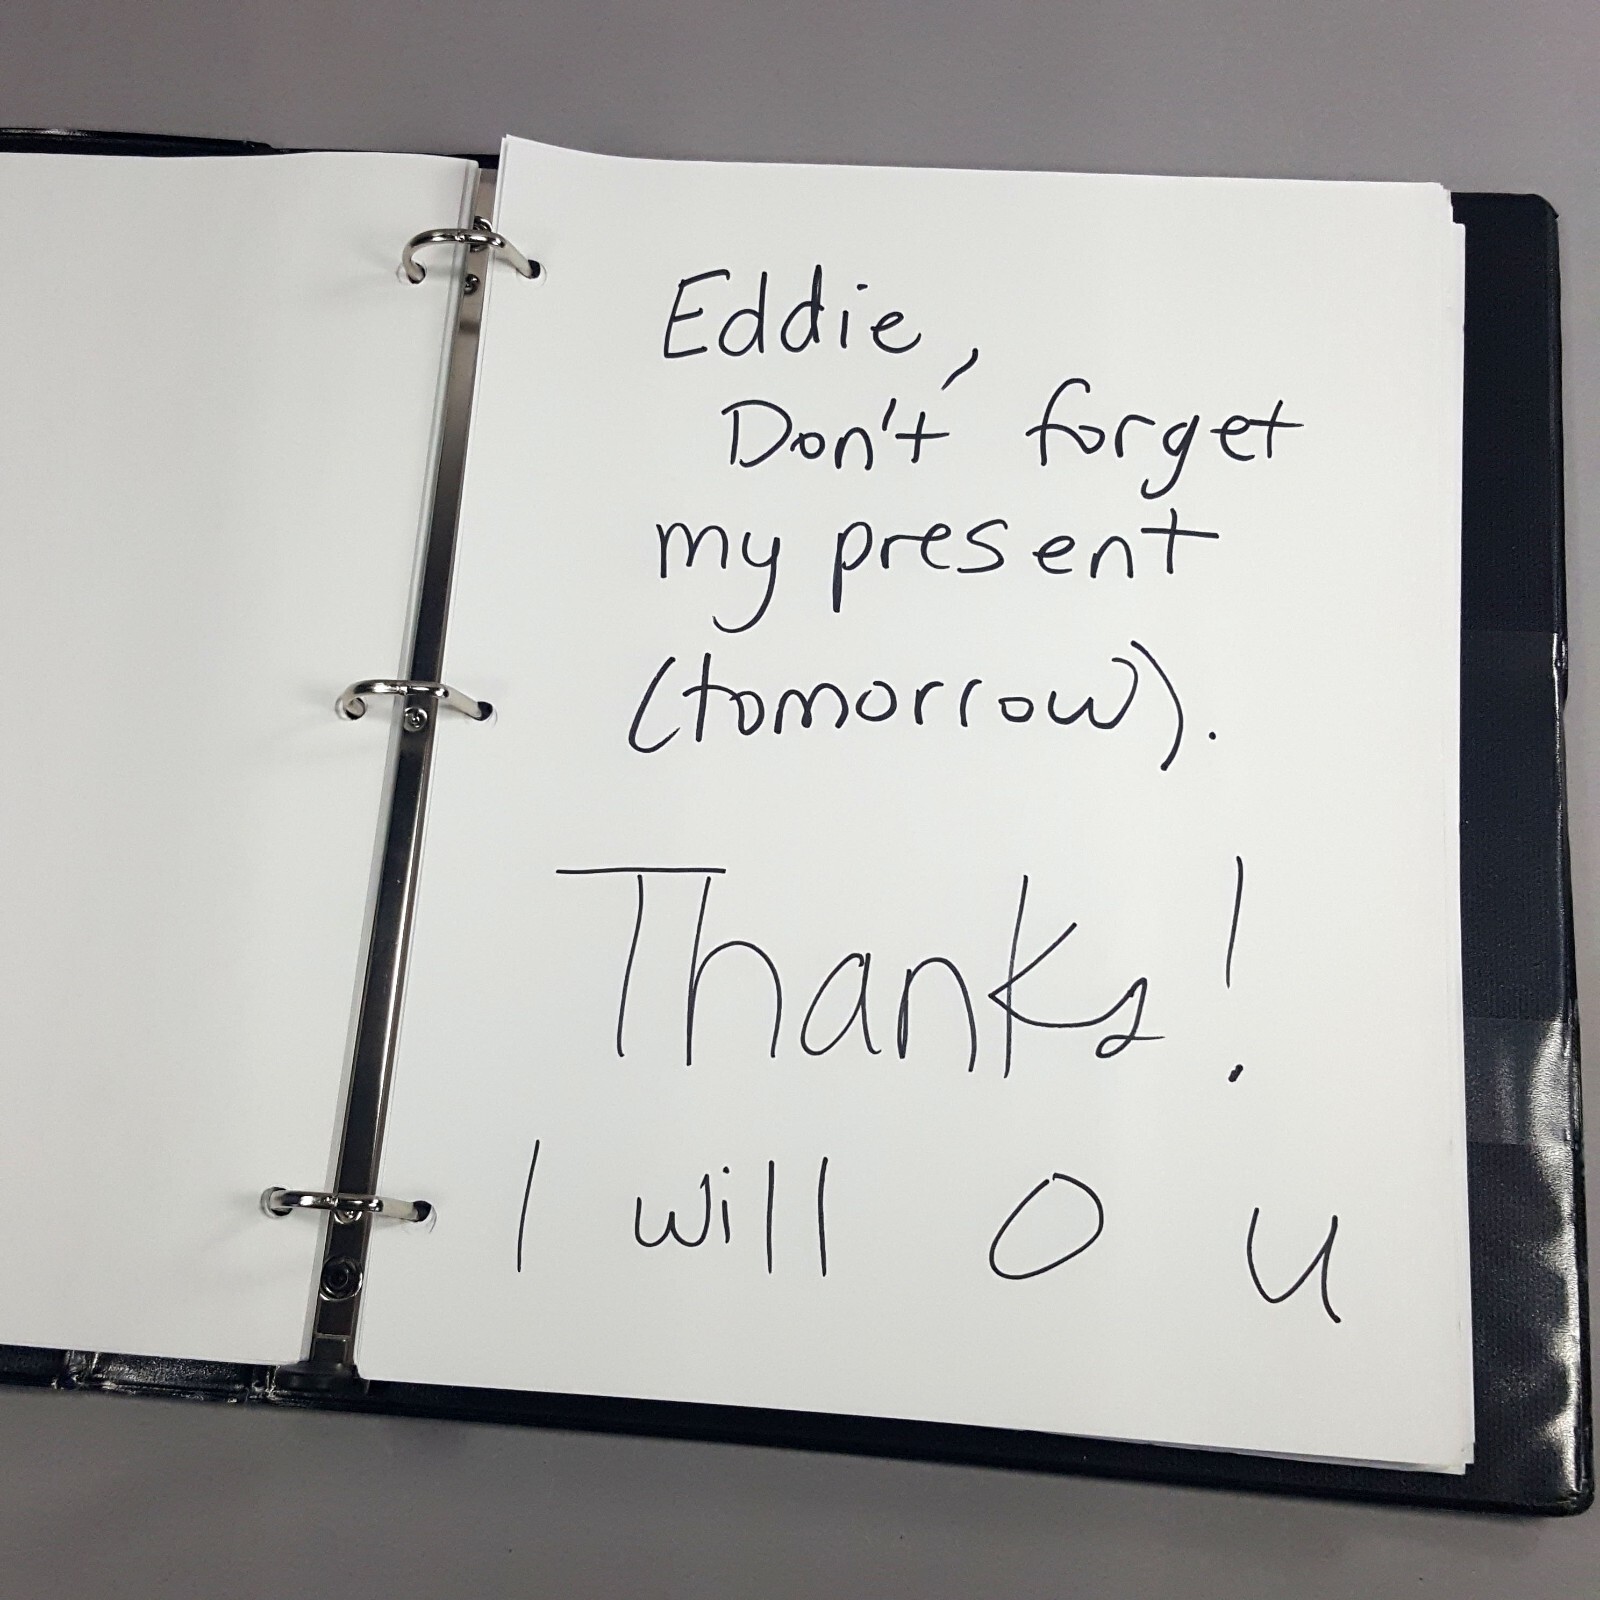 Eddie,
Don't forget
my present
(tomorrow).
Thanks!
I will O u